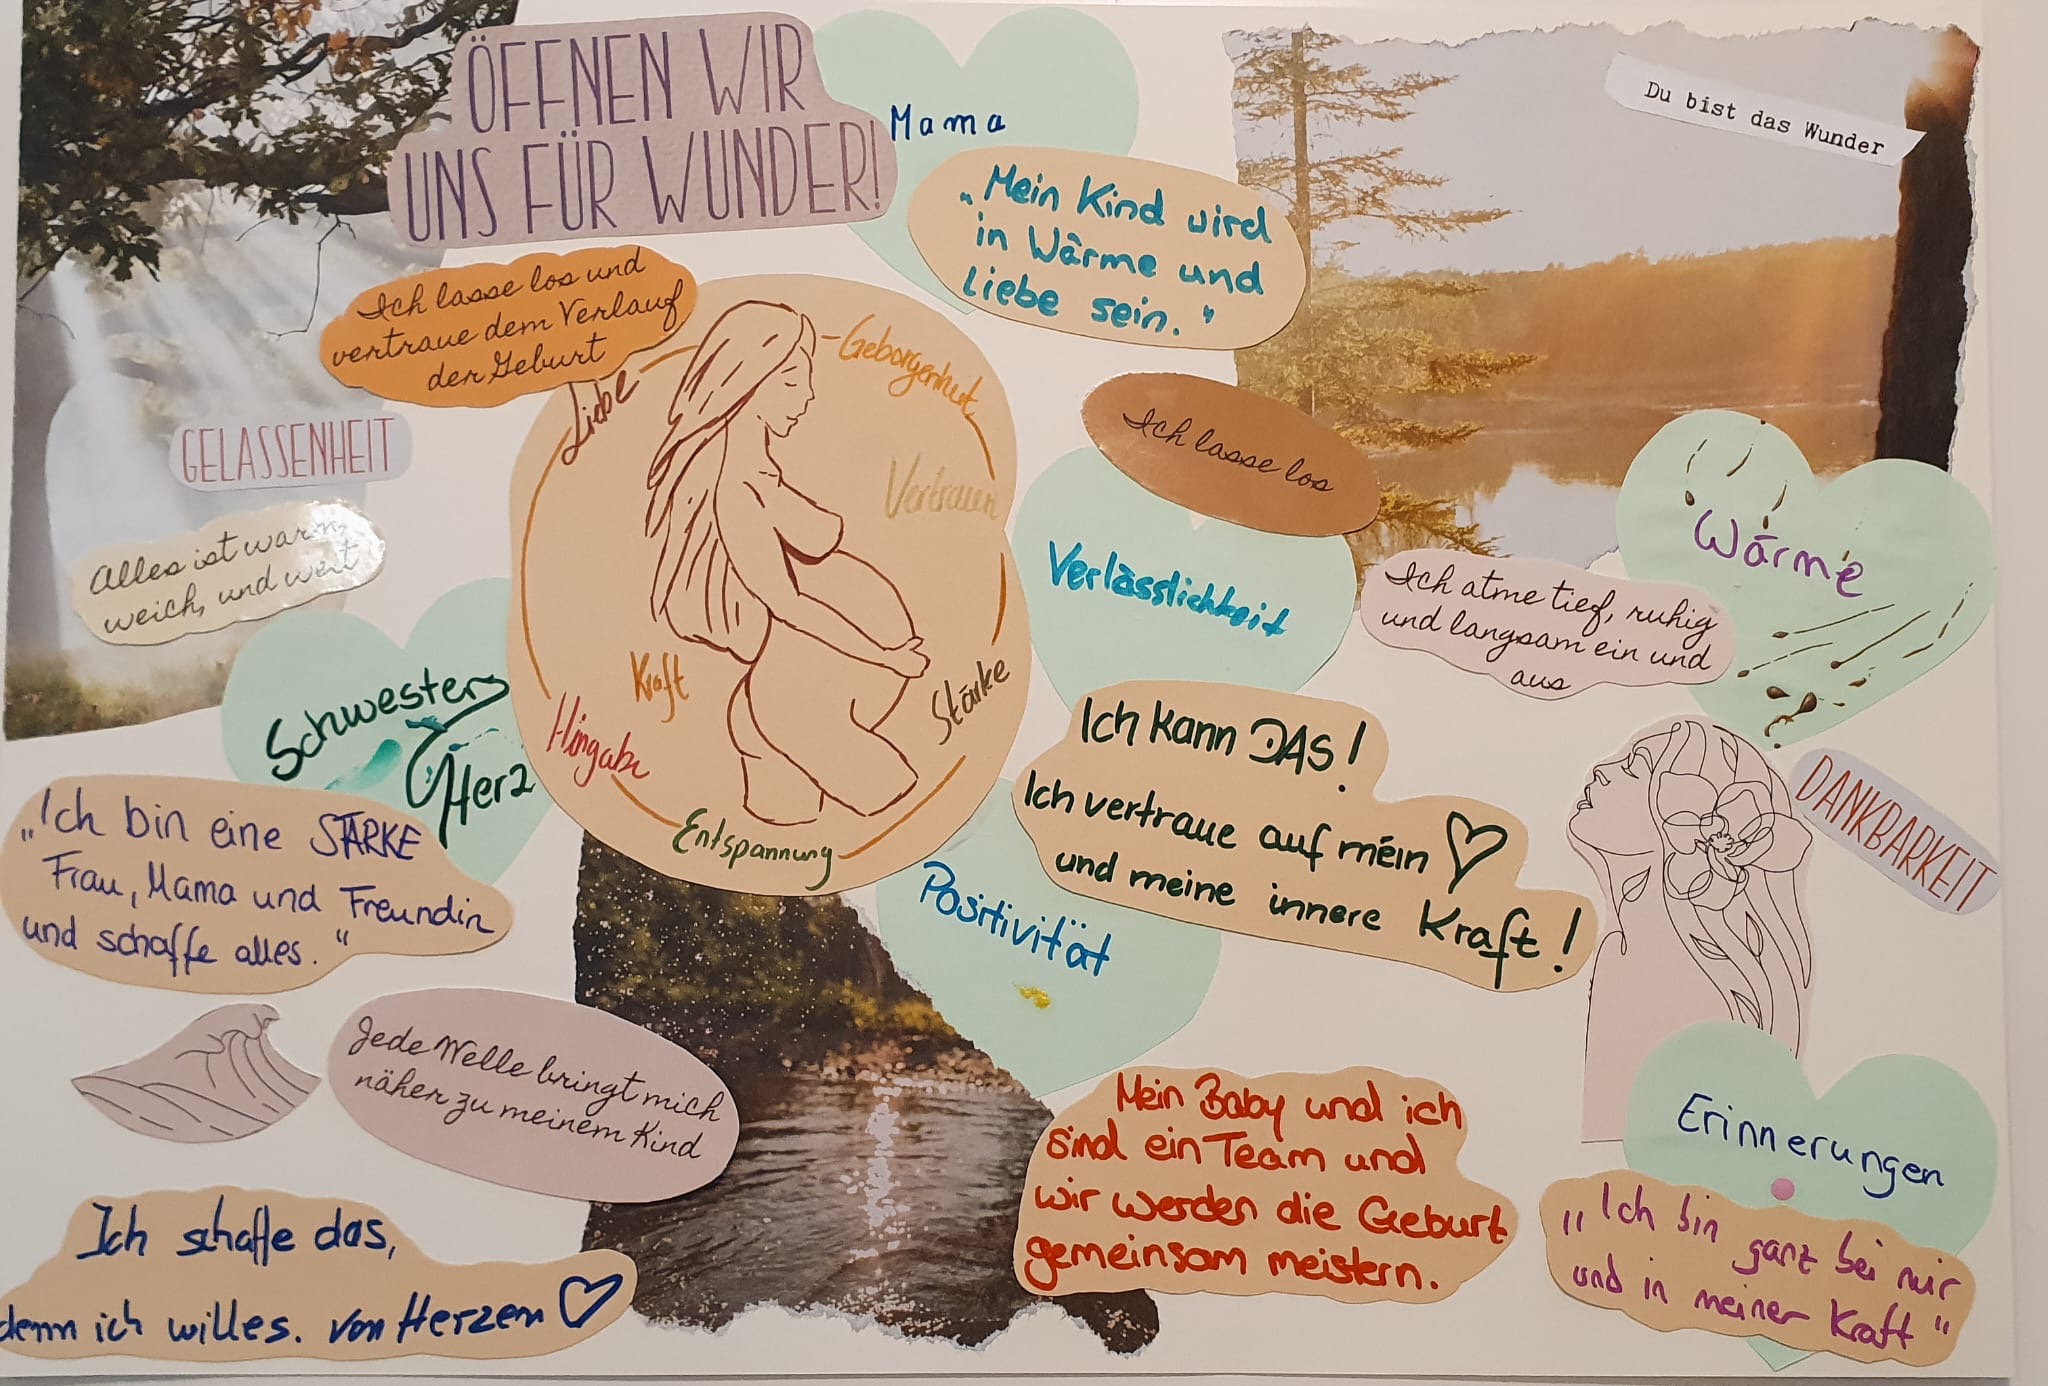 ÖFFNEN WIR
UNS FÜR WUNDER!
Mama
Du bist das Wunder
„Mein Kind wird
in Wärme und
Liebe sein."
Ich lasse los und
vertraue dem Verlauf
der Geburt
Liebe
Geborgenheit
Vertrauen
Kraft
Stärke
Hingabe
Entspannung
GELASSENHEIT
Alles ist warm,
weich, und weit
Ich lasse los
Verlässlichkeit
Wärme
Ich atme tief, ruhig
und langsam ein und
aus
Schwester
Herz
Ich kann DAS!
Ich vertraue auf mein ♡
und meine innere Kraft!
DANKBARKEIT
„Ich bin eine STARKE
Frau, Mama und Freundin
und schaffe alles."
Positivität
Jede Welle bringt mich
näher zu meinem Kind
Mein Baby und ich
sind ein Team und
wir werden die Geburt
gemeinsam meistern.
Erinnerungen
"Ich bin ganz bei mir
und in meiner Kraft"
Ich schaffe das,
denn ich will es. von Herzen ♡